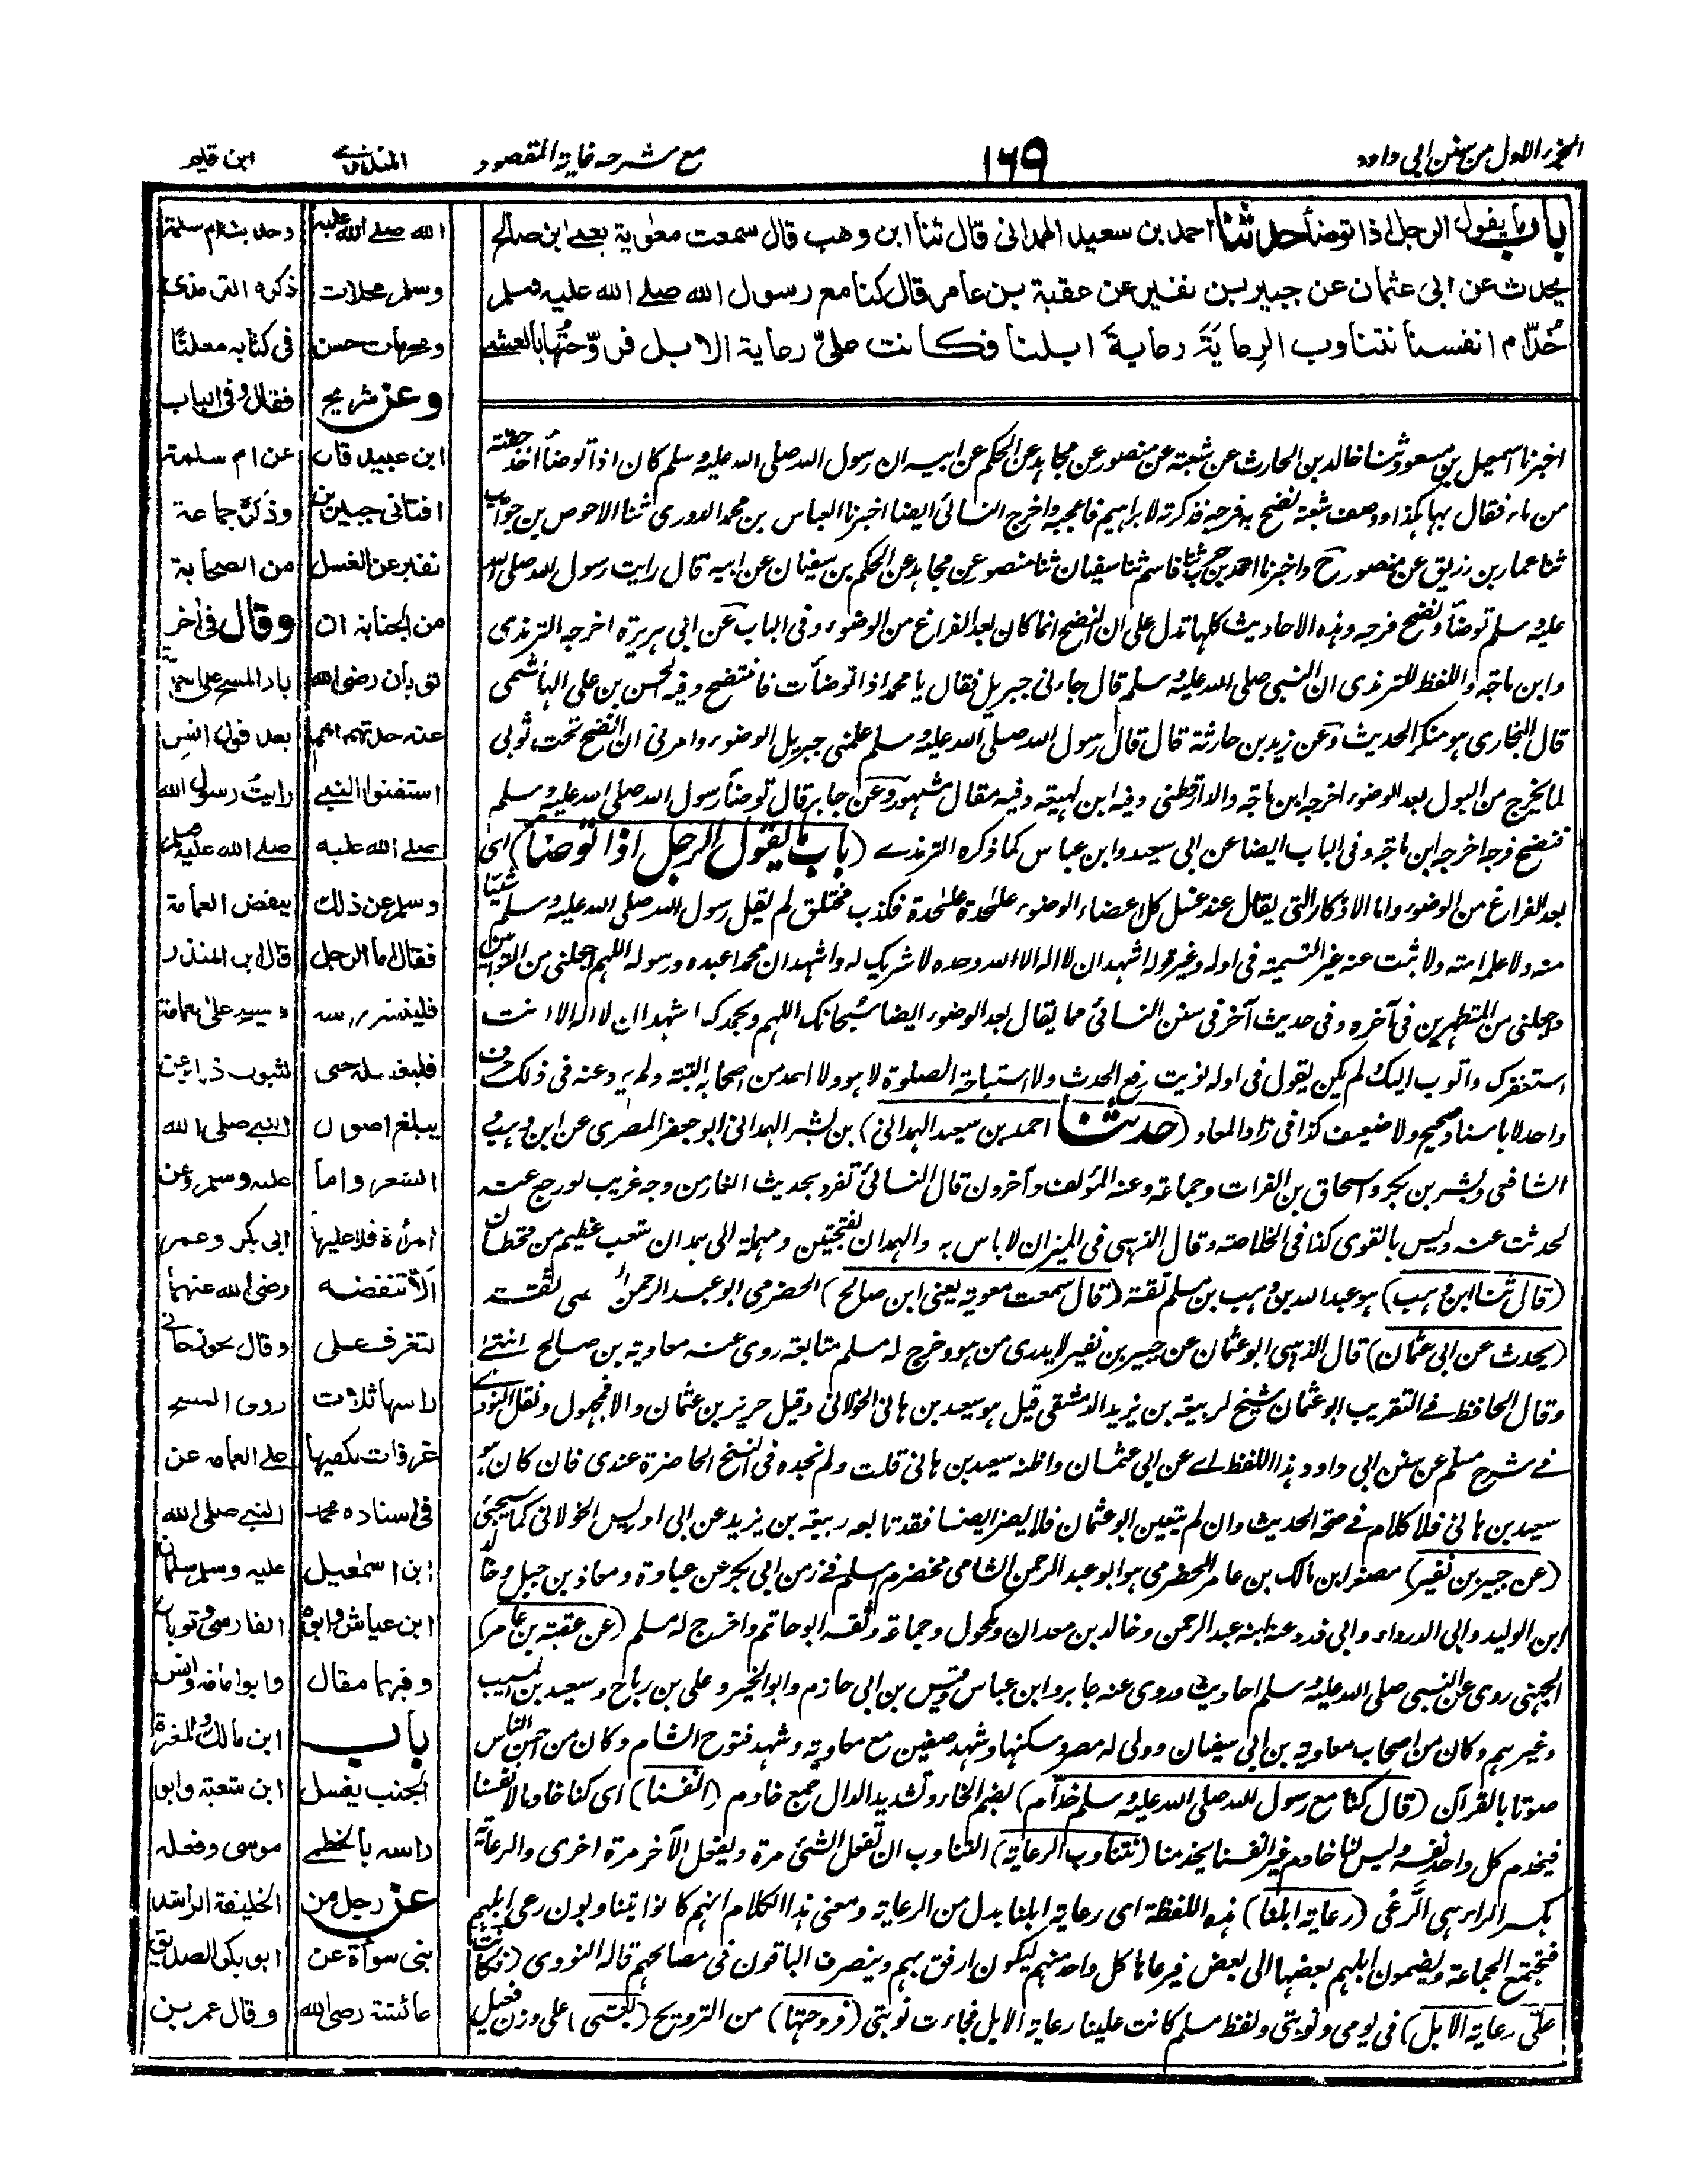 الجزء الاول من سنن ابی داود
١٦٩
مع شرحه غاية المقصود
المنذری
ابن قیم
باب ما يقول الرجل اذا توضأ حدثنا احمد بن سعيد الهمدانی قال ثنا ابن وهب قال سمعت معٰوية يعنے ابن صالح
يحدث عن ابی عثمان عن جبير بن نفير عن عقبة بن عامر قال كنا مع رسول الله صلے الله عليه وسلم
خُدّام انفسنا نتناوب الرِعايَةَ رعايةَ ابلنا فكانت علیّ رعاية الابل فروّحتُها بالعشے
اخبرنا اسمعيل بن مسعود ثنا خالد بن الحارث عن شعبة عن منصور عن مجاهد عن الحكم عن ابيه ان رسول الله صلی الله عليه وسلم كان اذا توضأ اخذ حفنة
من ماء فقال بها هكذا ووصف شعبة نضح به فرجه فذكرته لابراهيم فاعجبه واخرج النسائی ايضا اخبرنا العباس بن محمد الدوری ثنا الاحوص بن جواب
ثنا عمار بن رزيق عن منصور ح واخبرنا احمد بن حرب ثنا قاسم ثنا سفيان ثنا منصور عن مجاهد عن الحكم بن سفيان عن ابيه قال رايت رسول الله صلی الله
عليه وسلم توضأ ونضح فرجه وهذه الاحاديث كلها تدل علی ان النضح انما كان بعد الفراغ من الوضوء وفی الباب عن ابی هريرة اخرجه الترمذی
وابن ماجة واللفظ للترمذی ان النبی صلی الله عليه وسلم قال جاءنی جبريل فقال يا محمد اذا توضأت فانتضح وفيه الحسن بن علی الهاشمی
قال البخاری هو منكر الحديث وعن زيد بن حارثة قال قال رسول الله صلی الله عليه وسلم علمنی جبريل الوضوء وامرنی ان انضح تحت ثوبی
لما يخرج من البول بعد الوضوء اخرجه ابن ماجة والدارقطنی وفيه ابن لهيعة وفيه مقال مشهور وعن جابر قال توضأ رسول الله صلی الله عليه وسلم
فنضح فرجه اخرجه ابن ماجة وفی الباب ايضا عن ابی سعيد وابن عباس كما ذكره الترمذے (باب ما يقول الرجل اذا توضأ) ای
بعد الفراغ من الوضوء واما الاذكار التی يقال عند غسل كل اعضاء الوضوء علٰحدة علٰحدة فكذب مختلق لم يقل رسول الله صلی الله عليه وسلم شيئا
منه ولا علمه امته ولا ثبت عنه غير التسمية فی اوله وغير قوله اشهد ان لا اله الا الله وحده لا شريك له واشهد ان محمدا عبده ورسوله اللهم اجعلنی من التوابين
واجعلنی من المتطهرين فی آخره وفی حديث آخر فی سنن النسائی مما يقال بعد الوضوء ايضا سبحانك اللهم وبحمدك اشهد ان لا اله الا انت
استغفرك واتوب اليك ولم يكن يقول فی اوله نويت رفع الحدث ولا استباحة الصلوة لا هو ولا احد من اصحابه البتة ولم يرو عنه فی ذلك حرف
واحد لا باسناد صحيح ولا ضعيف كذا فی زاد المعاد (حدثنا احمد بن سعيد الهمدانی) بن بشر الهمدانی ابو جعفر المصری عن ابن وهب
الشافعی وبشر بن بكر واسحاق بن الفرات وجماعة وعنه المؤلف وآخرون قال النسائی تفرد بحديث الغار من وجه غريب لو رجع عنه
لحدثت عنه وليس بالقوی كذا فی الخلاصة وقال الذهبی فی الميزان لا باس به والهمدان بفتحتين ومهملة الی همدان شعب عظيم من قحطان
(قال ثنا ابن وهب) هو عبد الله بن وهب بن مسلم ثقة (قال سمعت معوية يعنی ابن صالح) الحضرمی ابو عبد الرحمن ثقة
(يحدث عن ابی عثمان) قال الذهبی ابو عثمان عن جبير بن نفير لا يدری من هو وخرج له مسلم متابعة روی عنه معاوية بن صالح انتهے
وقال الحافظ فے التقريب ابو عثمان شيخ لربيعة بن يزيد الدمشقی قيل هو سعيد بن هانئ الخولانی وقيل حريز بن عثمان والا فمجهول ونقل النووے
فے شرح مسلم عن سنن ابی داود هذا اللفظ اے عن ابی عثمان واظنه سعيد بن هانئ قلت ولم نجده فی النسخ الحاضرة عندی فان كان هو
سعيد بن هانئ فلا كلام فے صحة الحديث وان لم يتعين ابو عثمان فلا يضر ايضا فقد تابعه ربيعة بن يزيد عن ابی ادريس الخولانی كما سيجئ
(عن جبير بن نفير) مصغر ابن مالك بن عامر الحضرمی هو ابو عبد الرحمن الشامی مخضرم اسلم فے زمن ابی بكر عن عبادة ومعاذ بن جبل وخالد
ابن الوليد وابی الدرداء وابی ذر وعنه ابنه عبد الرحمن وخالد بن معدان ومكحول وجماعة وثقه ابو حاتم واخرج له مسلم (عن عقبة بن عامر)
الجهنی روی عن النبی صلی الله عليه وسلم احاديث وروی عنه جابر وابن عباس وقيس بن ابی حازم وابو الخير وعلی بن رباح وسعيد بن المسيب
وغيرهم وكان من اصحاب معاوية بن ابی سفيان وولی له مصر وسكنها وشهد صفين مع معاوية وشهد فتوح الشام وكان من احسن الناس
صوتا بالقرآن (قال كنا مع رسول الله صلی الله عليه وسلم خدّام) بضم الخاء وتشديد الدال جمع خادم (انفسنا) ای كنا خادما لانفسنا
فيخدم كل واحد نفسه وليس لنا خادم غير انفسنا يخدمنا (نتناوب الرعاية) التناوب ان تفعل الشئ مرة ويفعل الآخر مرة اخری والرعاية
بكسر الراء هی الرَّعْی (رعاية ابلنا) هذه اللفظة ای رعاية ابلنا بدل من الرعاية ومعنی هذا الكلام انهم كانوا يتناوبون رعی ابلهم
فتجتمع الجماعة ويضمون ابلهم بعضها الی بعض فيرعاها كل واحد منهم ليكون ارفق بهم وينصرف الباقون فی مصالحهم قاله النووی (فكانت
علیّ رعاية الابل) فی يومی ونوبتی ولفظ مسلم كانت علينا رعاية الابل فجاءت نوبتی (فروحتها) من الترويح (بالعشی) علی وزن فعيل
الله صلے الله عليه
وسلم عجلات
وعربات حسن
وعن شريح
ابن عبيد قال
افتانی جبير بن
نفير عن الغسل
من الجنابة ان
ثوبان رضی الله
عنه حدثهم انهم
استفتوا النبے
صلے الله عليه
وسلم عن ذلك
فقال اما الرجل
فلينشر راسه
فليغسله حتی
يبلغ اصول
الشعر واما
المرأة فلا عليها
الّا تنقضه
لتغرف علی
راسها ثلاث
غرفات بكفيها
فی اسناده محمد
ابن اسمٰعيل
ابن عياش وابوه
وفيهما مقال
باب
الجنب يغسل
راسه بالخطمے
عن رجل من
بنی سوأة عن
عائشة رضی الله
وحديث ام سلمة
ذكره الترمذی
فی كتابه معلقا
فقال وفی الباب
عن ام سلمة
وذكره جماعة
من الصحابة
وقال فی آخر
باب المسح علی العمامة
بعد قول انس
رايت رسول الله
صلے الله عليه وسلم
ينقض العمامة
قال ابن المنذر
ومسح علی عمامة
لثبوت ذلك عن
النبے صلی الله
عليه وسلم وعن
ابی بكر وعمر
رضی الله عنهما
وقال الجوزجانی
روی المسح
علی العمامة عن
النبے صلی الله
عليه وسلم سلمان
الفارسی وثوبان
وابو امامة وانس
ابن مالك والمغيرة
ابن شعبة وابو
موسی وفعله
الخليفة الراشد
ابو بكر الصديق
وقال عمر بن